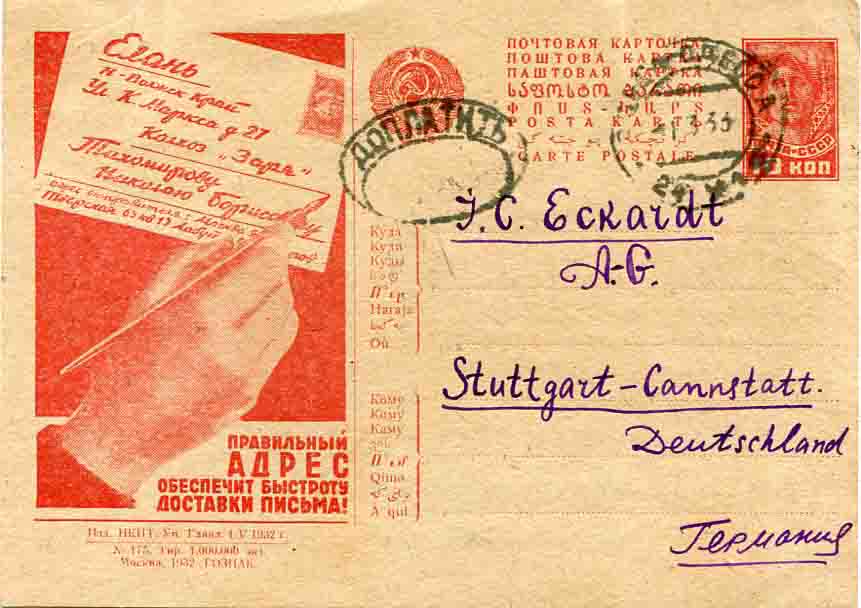 Елань
Н-Волжск край
Ул К. Маркса д 27
Колхоз „Заря"
Тихомирову
Николаю Борисов
ПРАВИЛЬНЫЙ
АДРЕС
ОБЕСПЕЧИТ БЫСТРОТУ
ДОСТАВКИ ПИСЬМА!
Изд. НКПТ. Уп. Главл. 1/V 1932 г.
№ 175. Тир. 1.000.000 экз.
Москва, 1932 ГОЗНАК.
ДОПЛАТИТЬ
ПОЧТОВАЯ КАРТОЧКА
ПОШТОВА КАРТКА
ПАШТОВАЯ КАРТКА
ՓՈՍՏ
POSTA KART
CARTE POSTALE
СССР
КОП
Куда
Куди
Куды
Haraja
Où
Кому
Кому
Каму
Qima
A qui
J. C. Eckardt
A-G.
Stuttgart-Cannstatt.
Deutschland
Германия